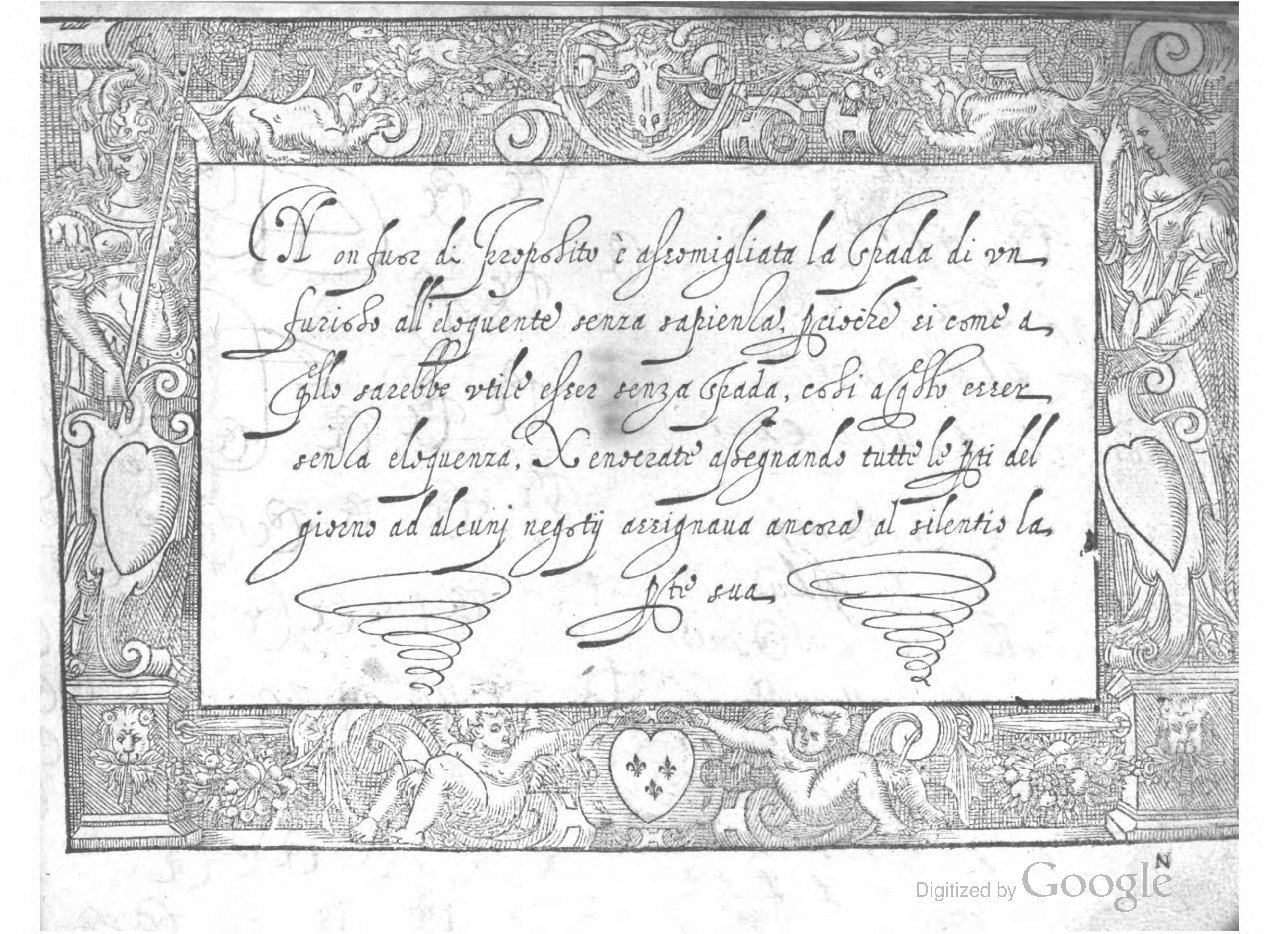 Non fuor di Proposito è assomigliata la spada di vn
furioso all'eloquente senza sapienza, pcioche si come a
qllo sarebbe vtile esser senza spada, cosi a qsto esser
senza eloquenza, Xenocrate assegnando tutte le pti del
giorno ad alcunj negotij assignaua ancora al silentio la
pte sua
N
Digitized by Google